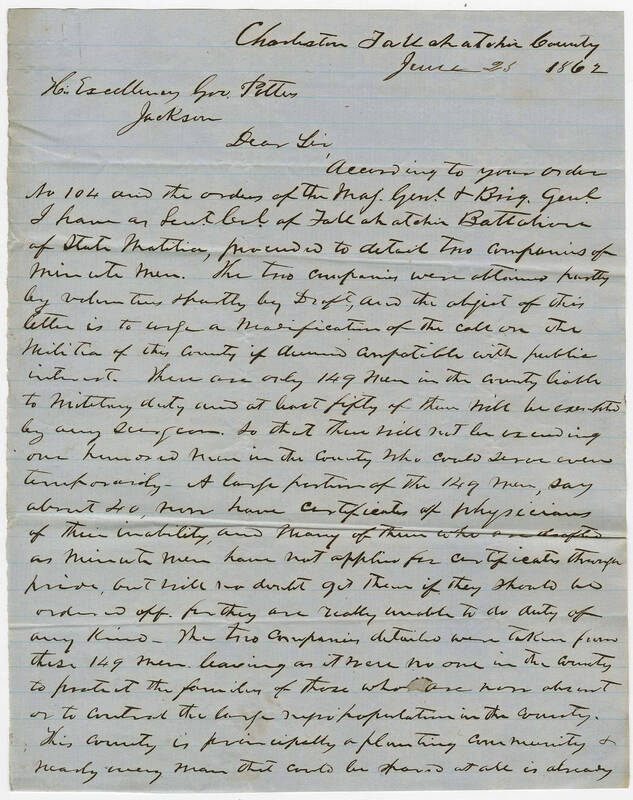 Charleston Tallahatchie County
June 23 1862
His Excellency Gov. Pettus
Jackson
Dear Sir,
According to your order
No 104 and the orders of the Maj. Genl. & Brig. Genl.
I have as Lieut. Col. of Tallahatchie Battalion
of State Militia, proceeded to detail two companies of
Minute Men. The two companies were obtained partly
by volunteers & partly by Draft, and the object of this
letter is to urge a modification of the call on the
Militia of this county if deemed compatible with public
interest. There are only 149 men in the county liable
to Military duty and at least fifty of them will be exempted
by any Surgeon. So that there will not be exceeding
one hundred men in the county who could serve even
temporarily - A large portion of the 149 men, say
about 40, now have certificates of physicians
of their inability, and many of them who are drafted
as Minute Men have not applied for certificates through
pride, but will no doubt get them if they should be
ordered off. for they are really unable to do duty of
any kind - The two companies detailed were taken from
these 149 men. leaving as it were no one in the county
to protect the families of those who are now absent
or to control the large negro population in the county.
This county is principally a planting community &
nearly every man that could be spared at all is already